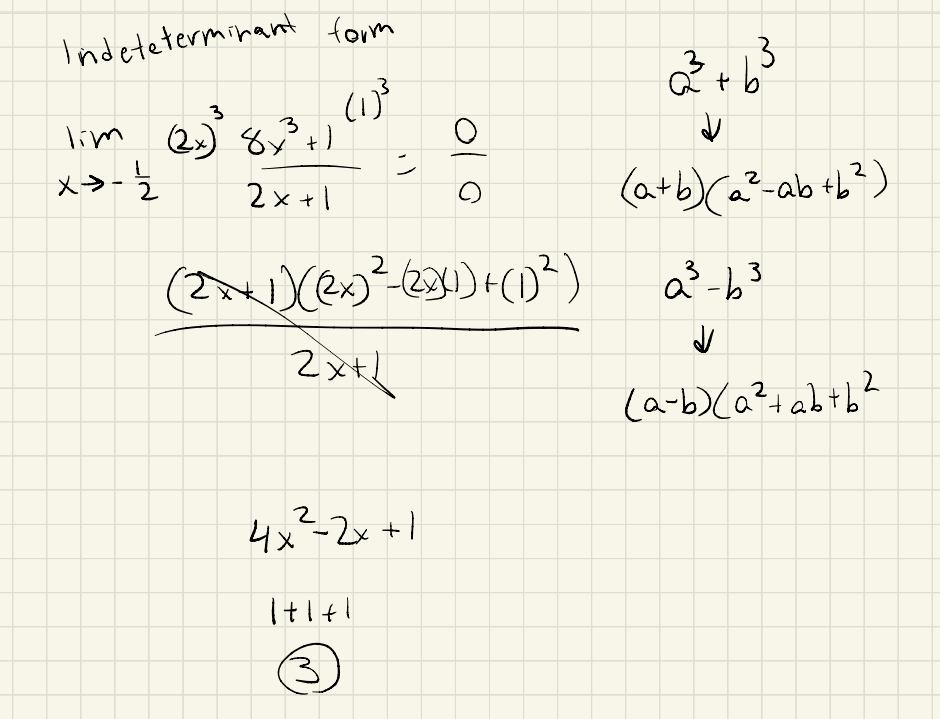 Indeterminant form
lim x→-1/2 (2x)³ 8x³+1 (1)³ / 2x+1 = 0/0
(2x+1)((2x)²-(2x)(1)+(1)²) / 2x+1
4x²-2x+1
1+1+1
3
a³+b³
↓
(a+b)(a²-ab+b²)
a³-b³
↓
(a-b)(a²+ab+b²